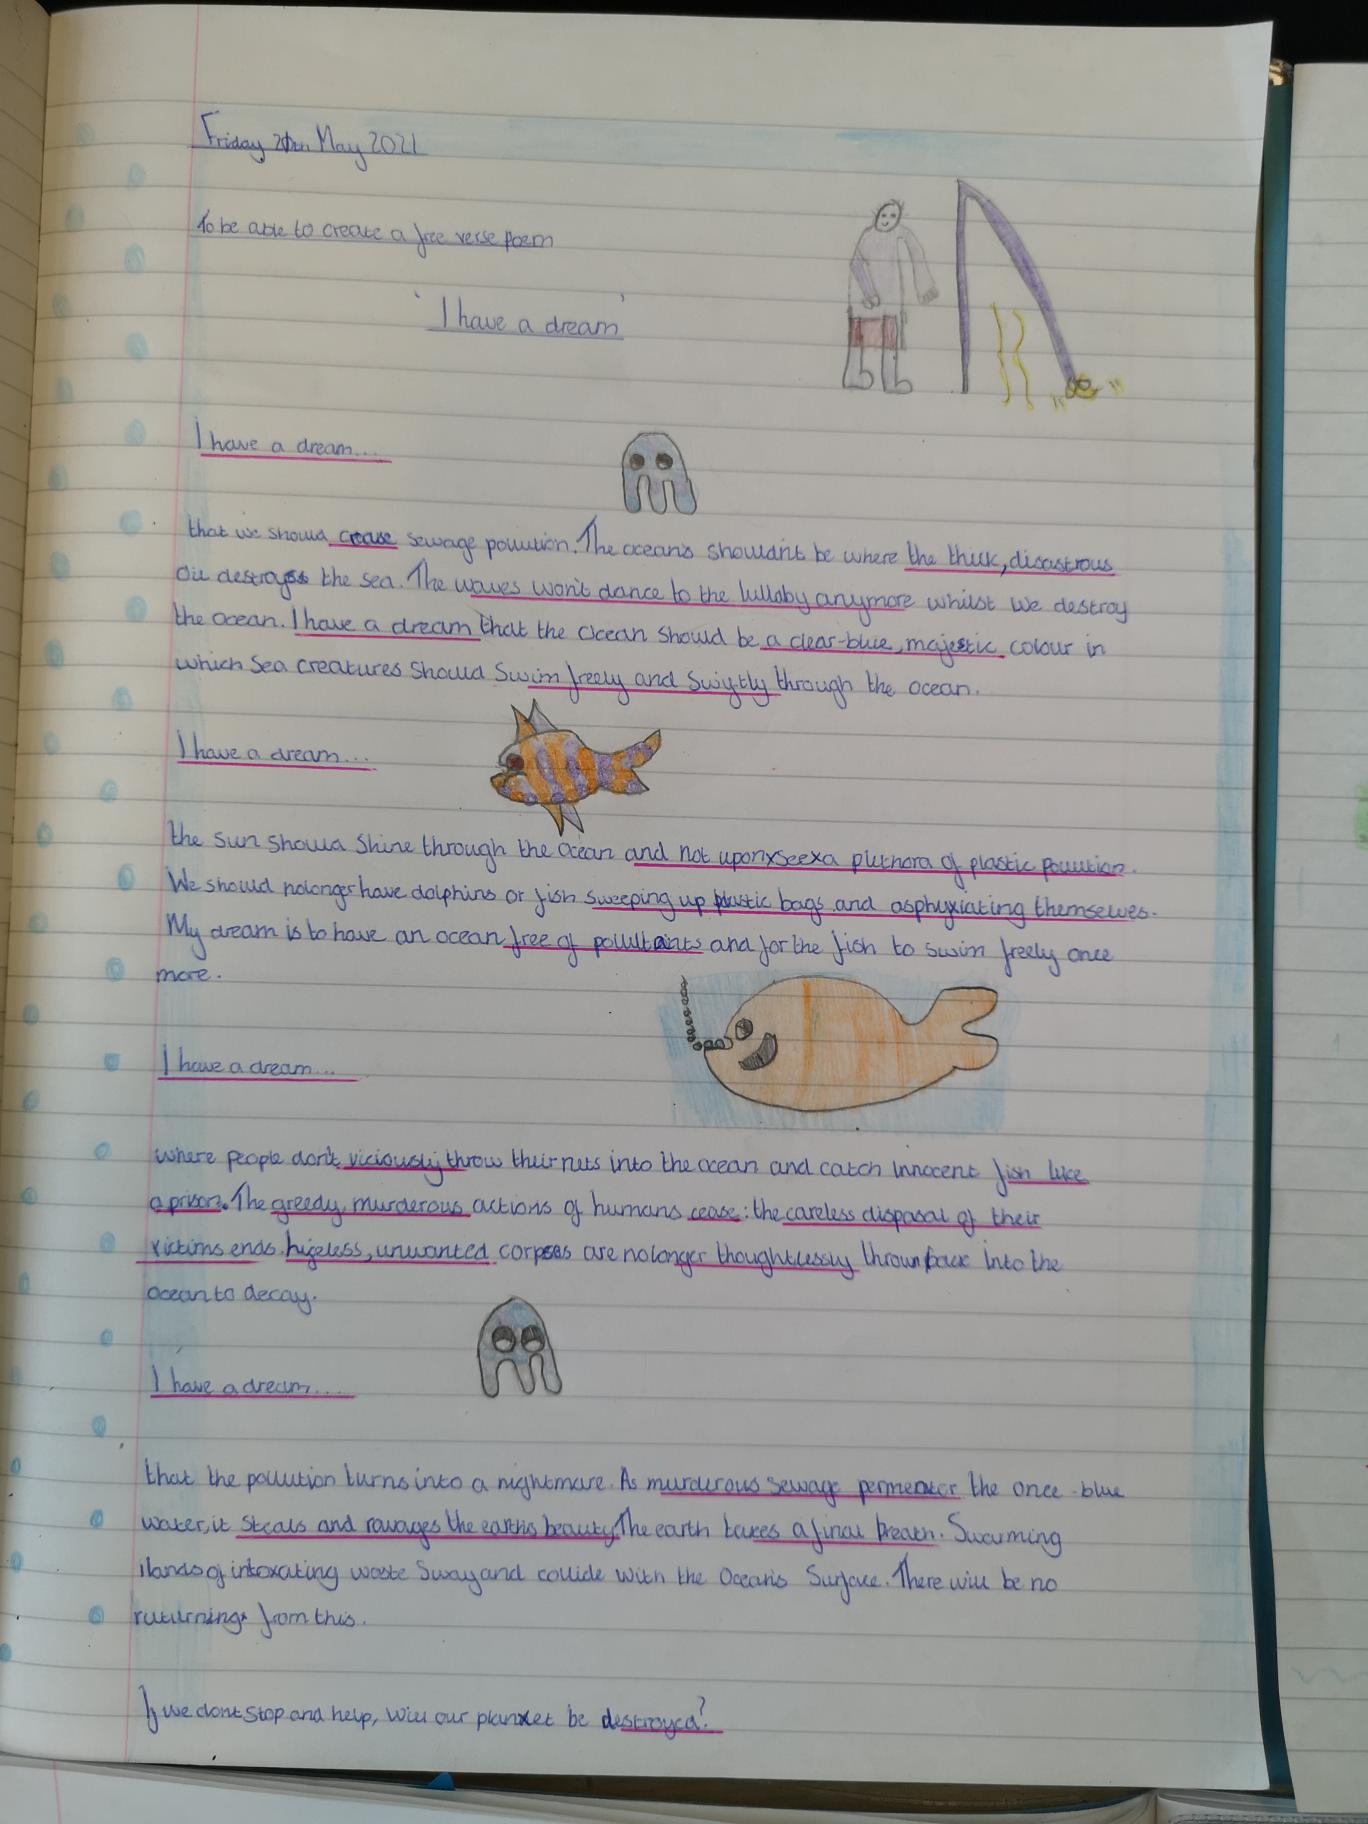 Friday May 2021
To be able to create a free verse poem
'I have a dream'
I have a dream...
that we should cease sewage pollution. The oceans shouldn't be where the thick, disastrous
oil destroys the sea. The waves won't dance to the lullaby anymore whilst we destroy
the ocean. I have a dream that the ocean should be a clear-blue, majestic colour in
which sea creatures should swim freely and swiftly through the ocean.
I have a dream...
the sun should shine through the ocean and not upon a plethora of plastic pollution.
We should nolonger have dolphins or fish sweeping up plastic bags and asphyxiating themselves.
My dream is to have an ocean free of pollutants and for the fish to swim freely once
more.
I have a dream...
where people don't viciously throw their nets into the ocean and catch innocent fish like
a prison. The greedy, murderous actions of humans cease: the careless disposal of their
victims ends. , unwanted corpses are nolonger thoughtlessly thrown back into the
ocean to decay.
I have a dream....
that the pollution turns into a nightmare. As murderous sewage the once-blue
water, it steals and ravages the earth's beauty. The earth takes a final breath. Swarming
ilands of intoxating waste sway and collide with the Ocean's surface. There will be no
from this.
If we dont stop and help, will our planet be destroyed?